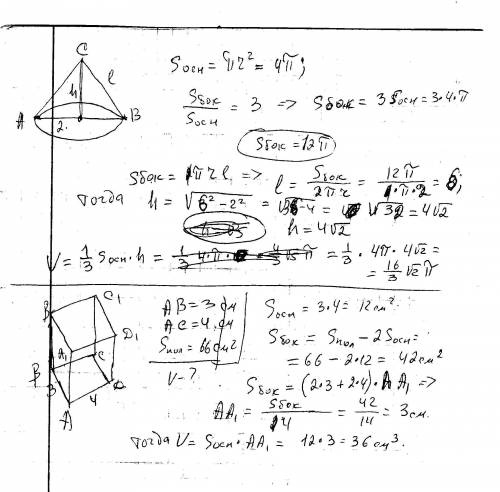 C
h
l
A
2
B
Sосн = πr² = 4π;
Sбок / Sосн = 3 => Sбок = 3Sосн = 3·4·π
Sбок = 12π
Sбок = πrl => l = Sбок / 2πr = 12π / 1·π·2 = 6;
тогда h = √6²-2² = √36-4 = √32 = 4√2
h = 4√2
V = 1/3 Sосн · h = 1/3 · 4π · 4√2 =
= 16/3 √2 π
C₁
B
D₁
A₁
C
B
3
D
4
A
AB = 3 см
AC = 4 см
Sпол = 66 см²
V - ?
Sосн = 3·4 = 12 см²
Sбок = Sпол - 2Sосн =
= 66 - 2·12 = 42 см²
Sбок = (2·3 + 2·4) · AA₁ =>
AA₁ = Sбок / 14 = 42 / 14 = 3 см.
тогда V = Sосн · AA₁ = 12·3 = 36 см³.